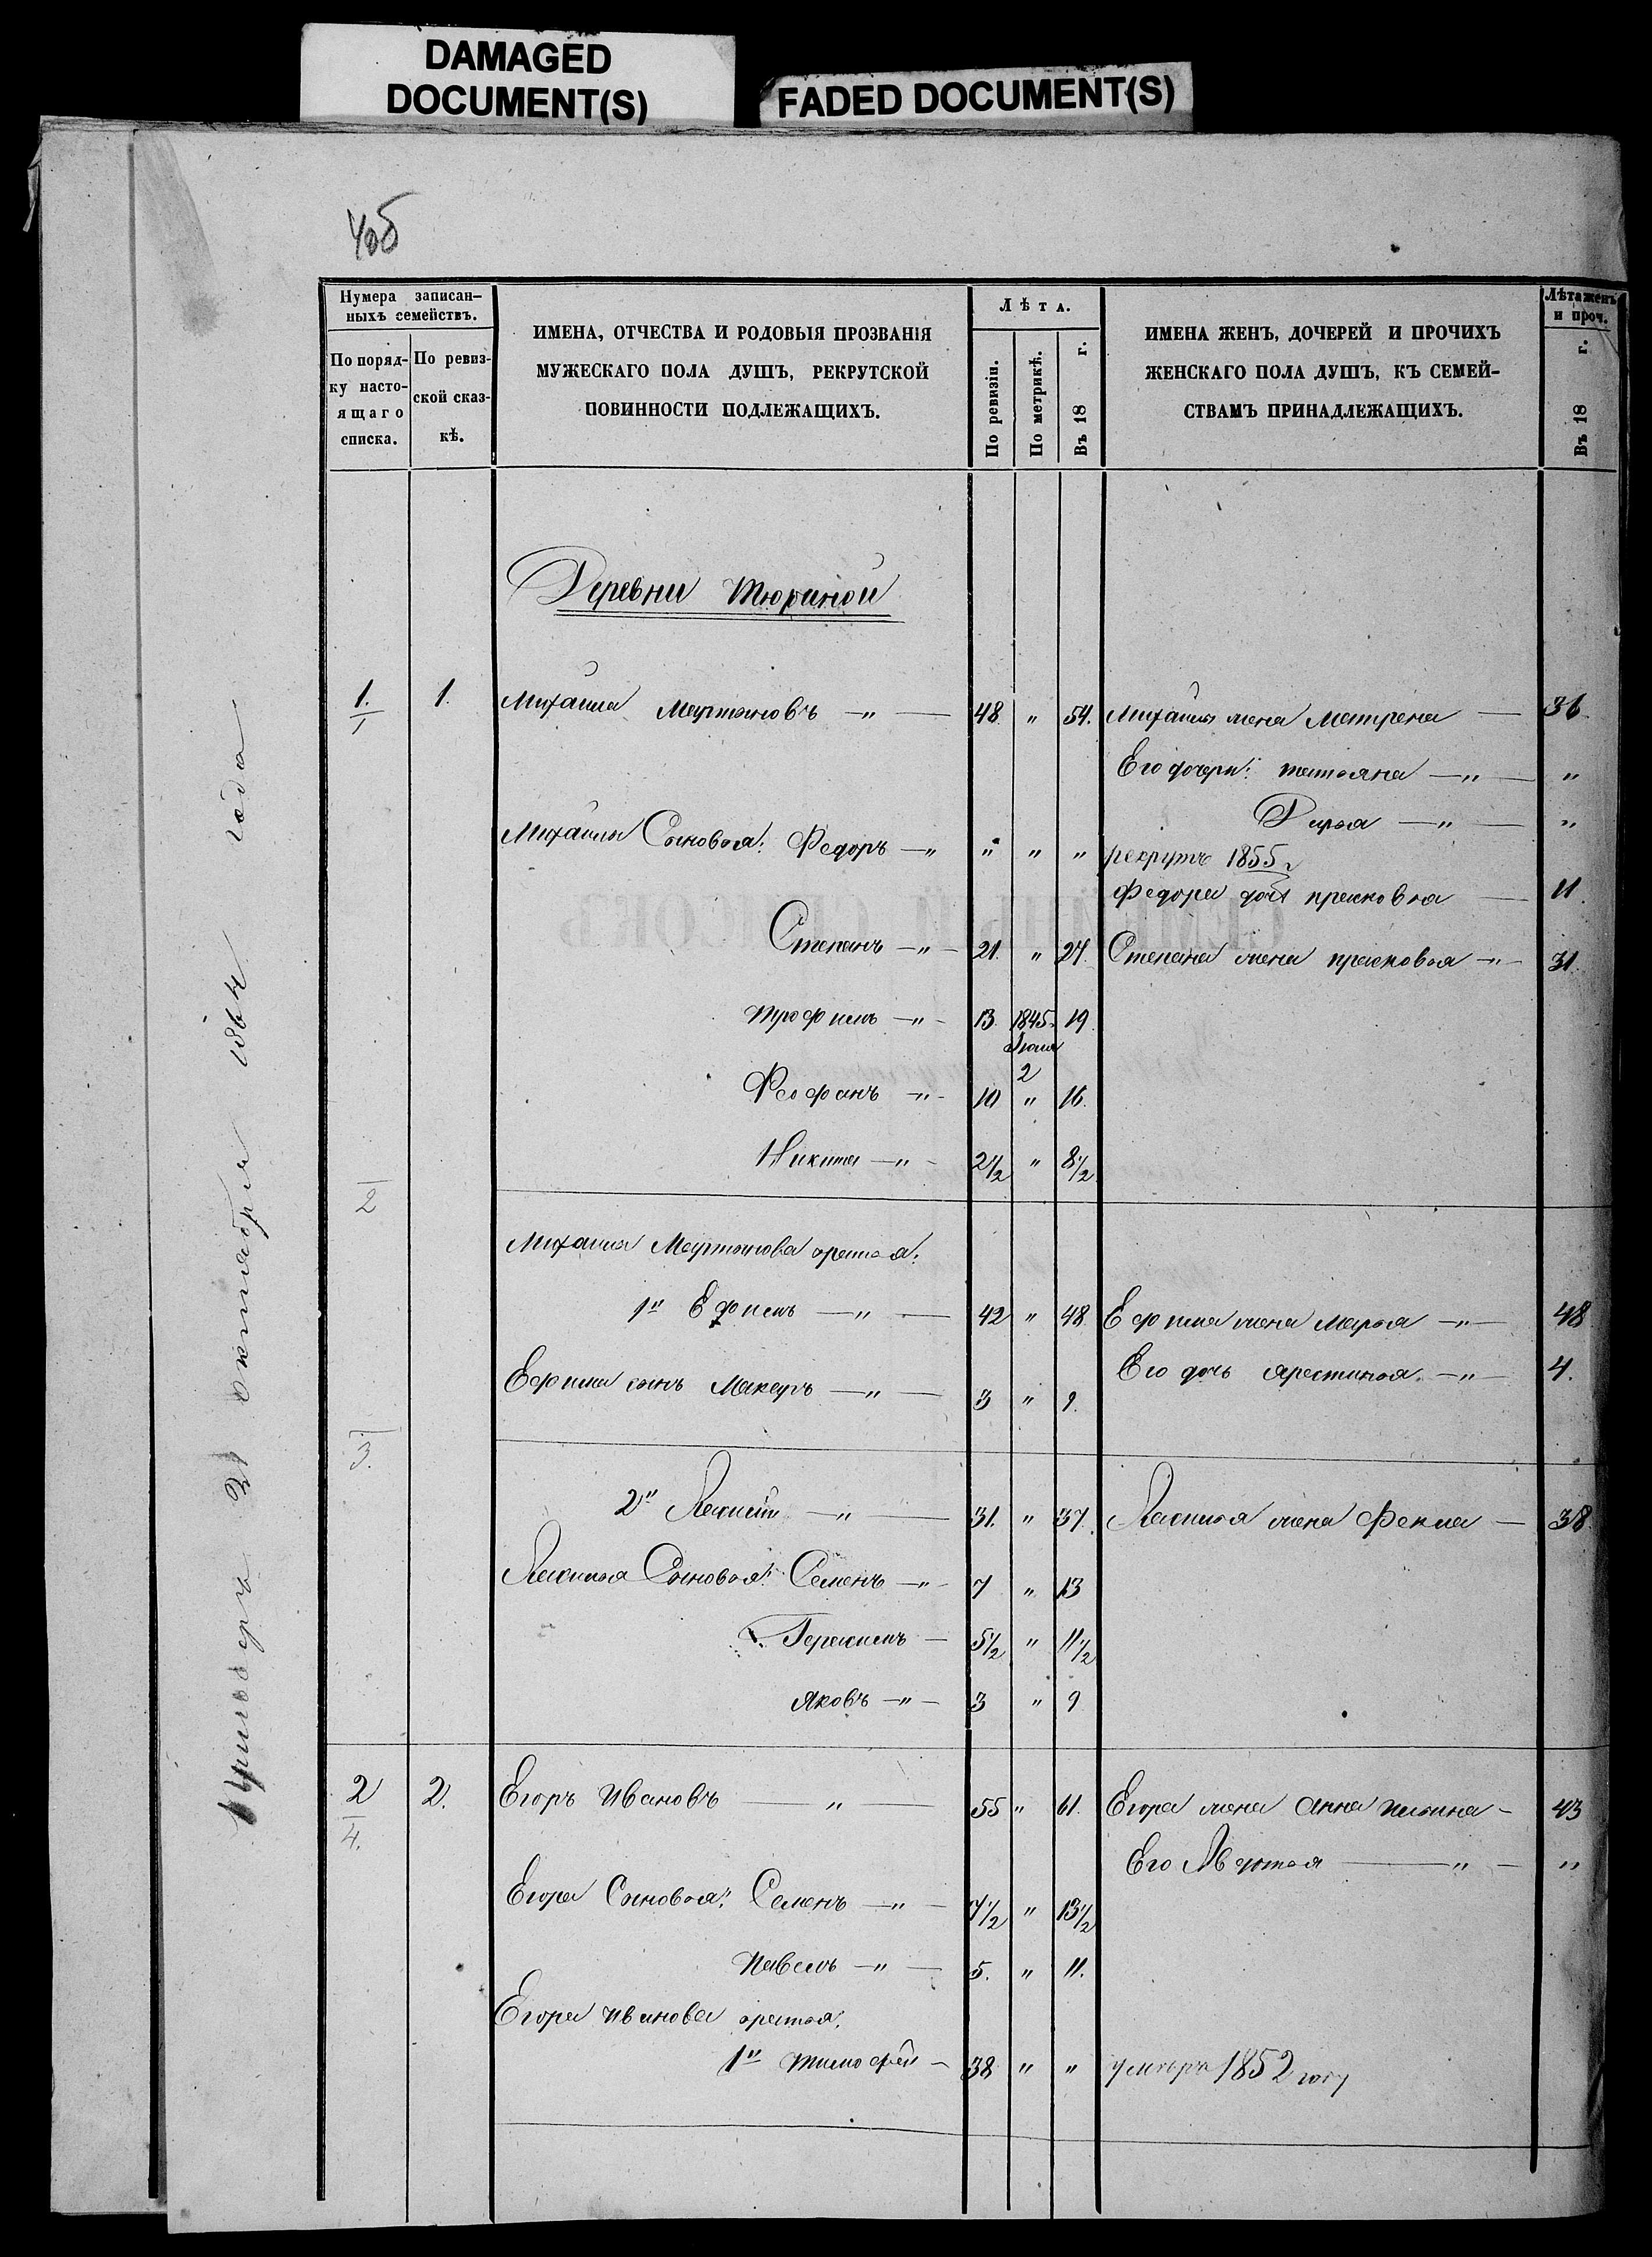 DAMAGED
DOCUMENT(S)
FADED DOCUMENT(S)
Нумера записан-
ныхъ семействъ.
По поряд-
ку насто-
ящаго
списка.
По ревиз-
ской сказ-
кѣ.
ИМЕНА, ОТЧЕСТВА И РОДОВЫЯ ПРОЗВАНІЯ
МУЖЕСКАГО ПОЛА ДУШЪ, РЕКРУТСКОЙ
ПОВИННОСТИ ПОДЛЕЖАЩИХЪ.
Лѣта.
По ревизіи.
По метрикѣ.
Въ 18 г.
ИМЕНА ЖЕНЪ, ДОЧЕРЕЙ И ПРОЧИХЪ
ЖЕНСКАГО ПОЛА ДУШЪ, КЪ СЕМЕЙ-
СТВАМЪ ПРИНАДЛЕЖАЩИХЪ.
Лѣта женъ
и проч.
Въ 18 г.
Деревни Тюриной
1. 1 1. Михайла Мартыновъ —„— 48 „ 54. Михайлы жена Матрена — 36
Его дочери: Татьяна —„— „
Дарья —„— „
Михайлы Сыновья: Федоръ —„ „ „ „ рекрутъ 1855 г
Федора дочь прасковья — 11
Степанъ —„— 21. „ 27. Степана жена прасковья —„— 31.
Трофимъ —„— 13. 1845. 19.
Іюля
2
Феофанъ —„— 10 „ 16.
Никита —„— 2½ „ 8½
2
Михайла Мартынова братья:
1й Ефимъ —„— 42 „ 48 Ефима жена Марья —„— 48
Его дочь —„— 4.
Ефима сынъ Макаръ —„— 3 „ 9.
3.
2й —„— 31. „ 37. жена Фекла — 38
Сыновья: Семенъ —„— 7 „ 13
Герасимъ — 5½ „ 11½
Яковъ —„— 3 „ 9
2 4. 2. Егоръ Ивановъ —„— 55 „ 61. Егора жена Анна Ильина — 43
Его Авдотья —„— „
Егора Сыновья: Семенъ —„— 7½ „ 13½
Павелъ —„— 5. „ 11.
Егора Иванова братья:
1й Тимофей — 38 „ „ умеръ 1852 году
31 октября 1864 года